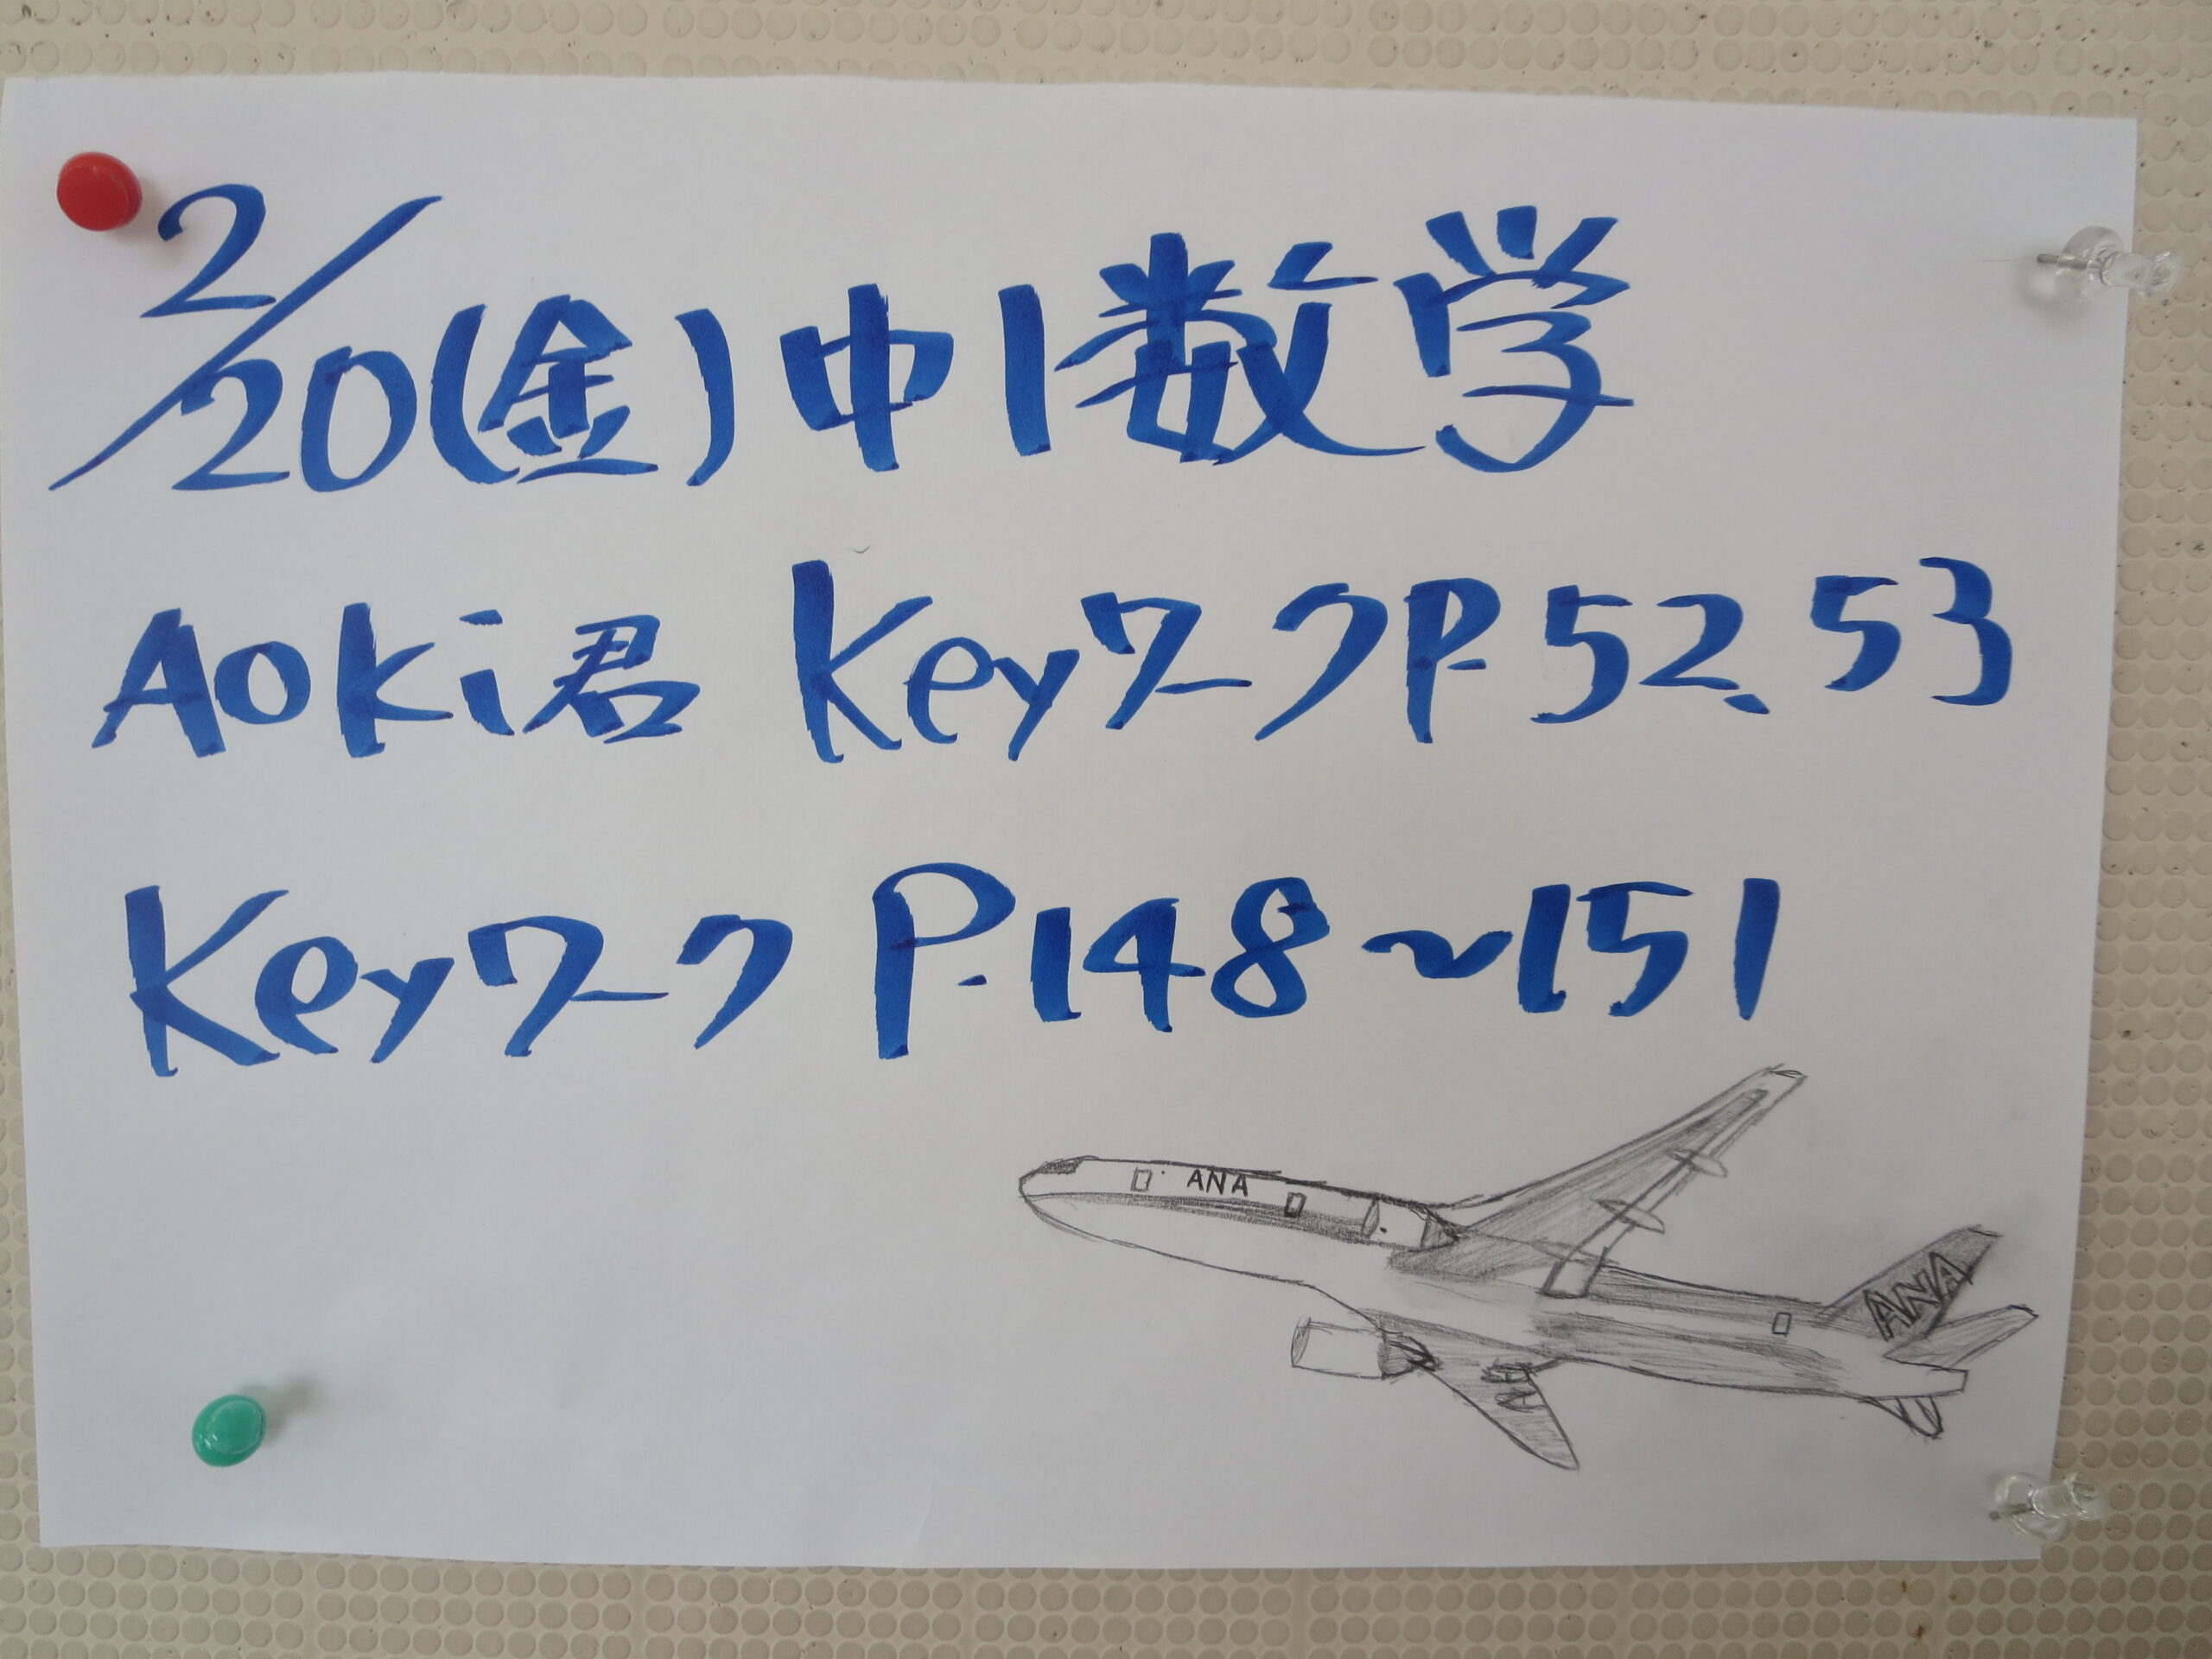 2/20(金)中1数学
Aoki君 KeyワークP.52、53
Keyワーク P.148~151
ANA
ANA